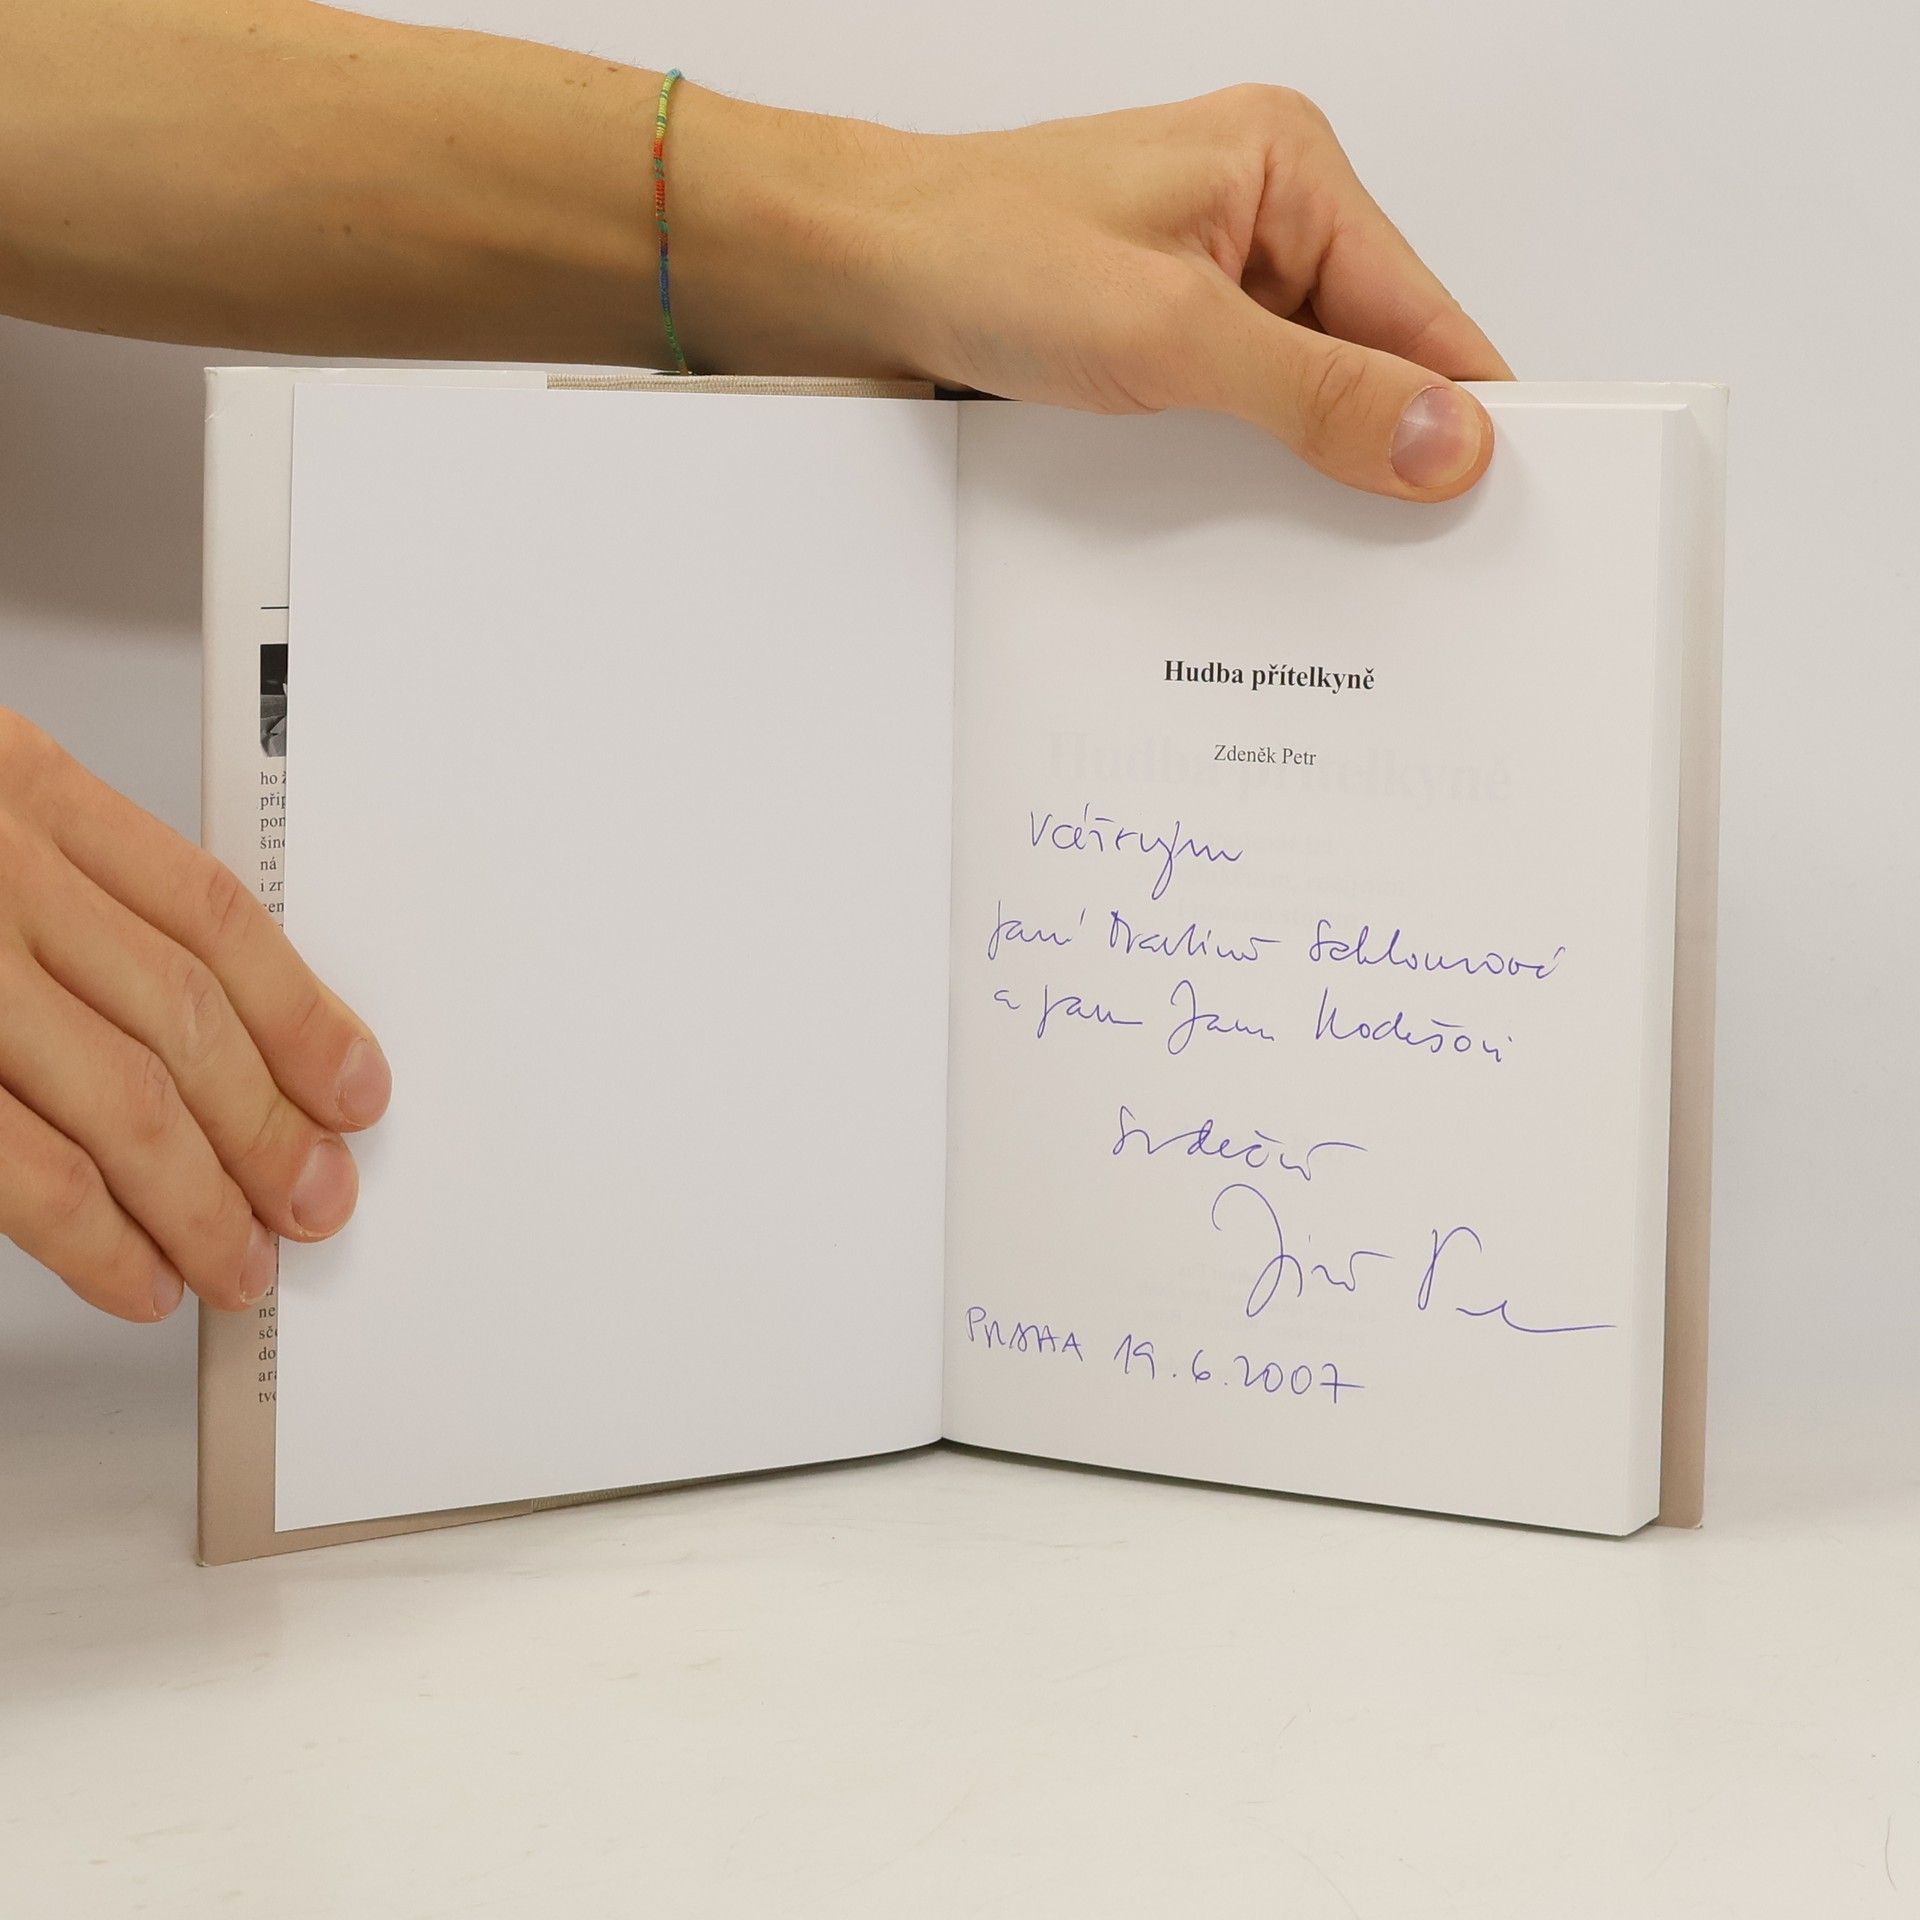 Hudba přítelkyně
Zdeněk Petr
Váženým
paní Martině Sehlourové
a panu Janu Kodešovi
Srdečně
Jiří
PRAHA 19.6.2007
ho
při
pon
šine
ná
i zr
cen
ne
sče
do
ara
tvo